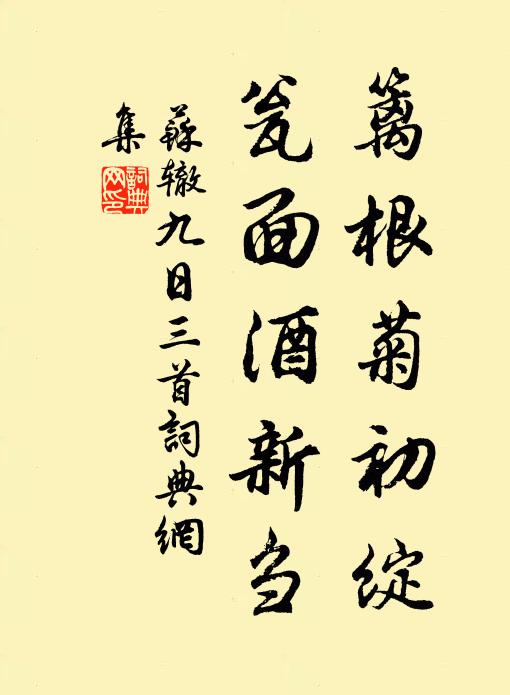 篱根菊初綻
瓮面酒新刍
蘇辙九日三首詞典網
集
詞典
网印